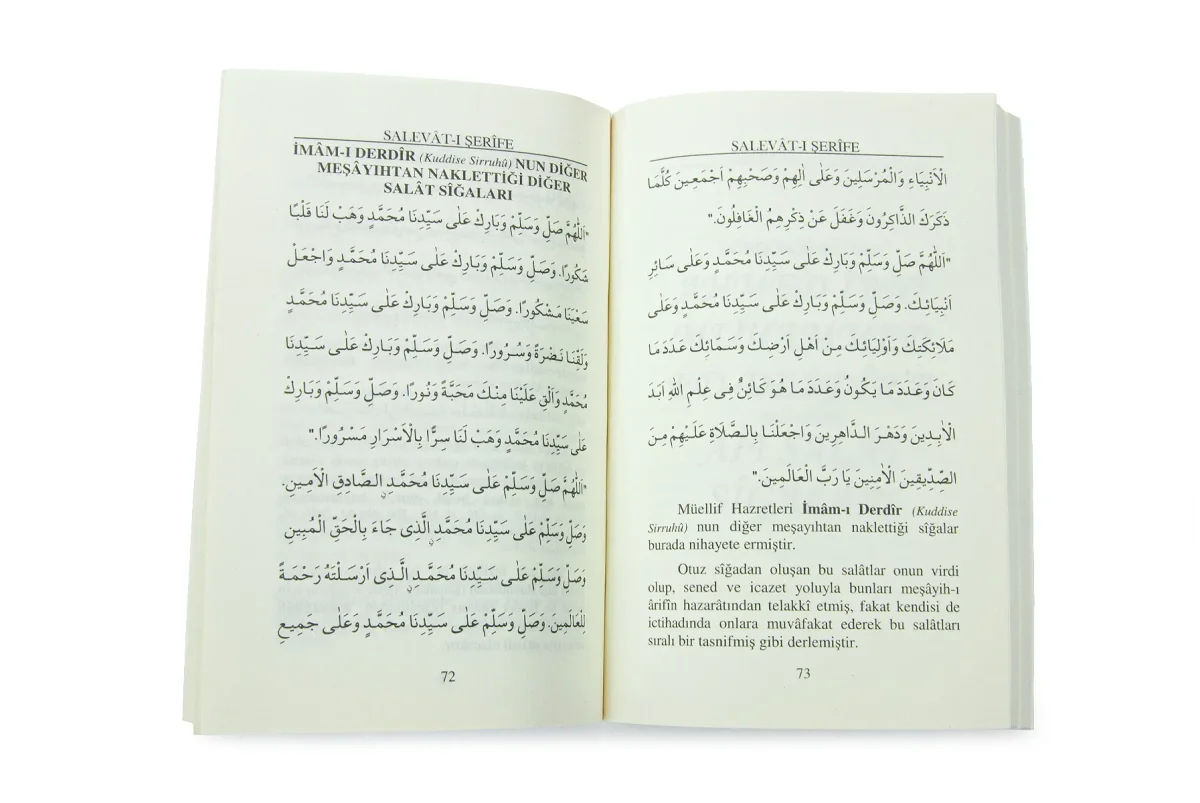 SALEVÂT-I ŞERÎFE
İMÂM-I DERDÎR (Kuddise Sirruhû) NUN DİĞER
MEŞÂYIHTAN NAKLETTİĞİ DİĞER
SALÂT SÎĞALARI
"اَللّٰهُمَّ صَلِّ وَسَلِّمْ وَبَارِكْ عَلٰى سَيِّدِنَا مُحَمَّدٍ وَهَبْ لَنَا قَلْبًا
شَكُورًا. وَصَلِّ وَسَلِّمْ وَبَارِكْ عَلٰى سَيِّدِنَا مُحَمَّدٍ وَاجْعَلْ
سَعْيَنَا مَشْكُورًا. وَصَلِّ وَسَلِّمْ وَبَارِكْ عَلٰى سَيِّدِنَا مُحَمَّدٍ
وَلَقِّنَا نَضْرَةً وَسُرُورًا. وَصَلِّ وَسَلِّمْ وَبَارِكْ عَلٰى سَيِّدِنَا
مُحَمَّدٍ وَاَلْقِ عَلَيْنَا مِنْكَ مَحَبَّةً وَنُورًا. وَصَلِّ وَسَلِّمْ وَبَارِكْ
عَلٰى سَيِّدِنَا مُحَمَّدٍ وَهَبْ لَنَا سِرًّا بِالْاَسْرَارِ مَسْرُورًا."
"اَللّٰهُمَّ صَلِّ وَسَلِّمْ عَلٰى سَيِّدِنَا مُحَمَّدٍ الصَّادِقِ الْاَمِينِ.
وَصَلِّ وَسَلِّمْ عَلٰى سَيِّدِنَا مُحَمَّدٍ الَّذِى جَاءَ بِالْحَقِّ الْمُبِينِ
وَصَلِّ وَسَلِّمْ عَلٰى سَيِّدِنَا مُحَمَّدٍ الَّذِى اَرْسَلْتَهُ رَحْمَةً
لِلْعَالَمِينَ. وَصَلِّ وَسَلِّمْ عَلٰى سَيِّدِنَا مُحَمَّدٍ وَعَلٰى جَمِيعِ
72
SALEVÂT-I ŞERÎFE
الْاَنْبِيَاءِ وَالْمُرْسَلِينَ وَعَلٰى اٰلِهِمْ وَصَحْبِهِمْ اَجْمَعِينَ كُلَّمَا
ذَكَرَكَ الذَّاكِرُونَ وَغَفَلَ عَنْ ذِكْرِهِمُ الْغَافِلُونَ."
"اَللّٰهُمَّ صَلِّ وَسَلِّمْ وَبَارِكْ عَلٰى سَيِّدِنَا مُحَمَّدٍ وَعَلٰى سَائِرِ
اَنْبِيَائِكَ. وَصَلِّ وَسَلِّمْ وَبَارِكْ عَلٰى سَيِّدِنَا مُحَمَّدٍ وَعَلٰى
مَلَائِكَتِكَ وَاَوْلِيَائِكَ مِنْ اَهْلِ اَرْضِكَ وَسَمَائِكَ عَدَدَ مَا
كَانَ وَعَدَدَ مَا يَكُونُ وَعَدَدَ مَا هُوَ كَائِنٌ فِى عِلْمِ اللهِ اَبَدَ
الْاٰبِدِينَ وَدَهْرَ الدَّاهِرِينَ وَاجْعَلْنَا بِالصَّلَاةِ عَلَيْهِمْ مِنَ
الصِّدِّيقِينَ الْاٰمِنِينَ يَا رَبَّ الْعَالَمِينَ."
Müellif Hazretleri İmâm-ı Derdîr (Kuddise
Sirruhû) nun diğer meşayıhtan naklettiği sîğalar
burada nihayete ermiştir.
Otuz sîğadan oluşan bu salâtlar onun virdi
olup, sened ve icazet yoluyla bunları meşâyih-ı
ârifîn hazarâtından telakkî etmiş, fakat kendisi de
ictihadında onlara muvâfakat ederek bu salâtları
sıralı bir tasnifmiş gibi derlemiştir.
73